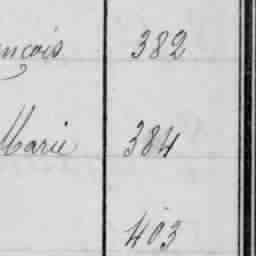 ançois 382
Marie 384
403